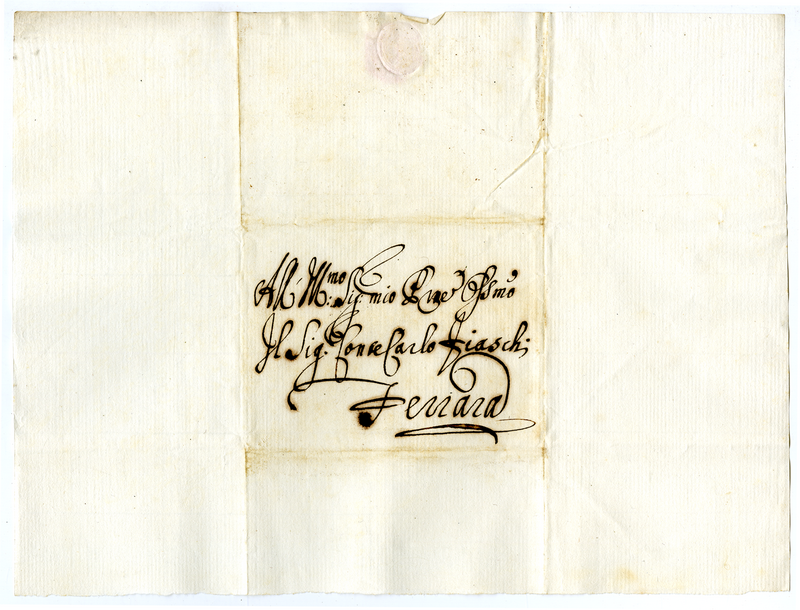 All' Ill:mo Sig: mio Prōne Ossmo
Il Sig: Conte Carlo Fiaschi
Ferrara